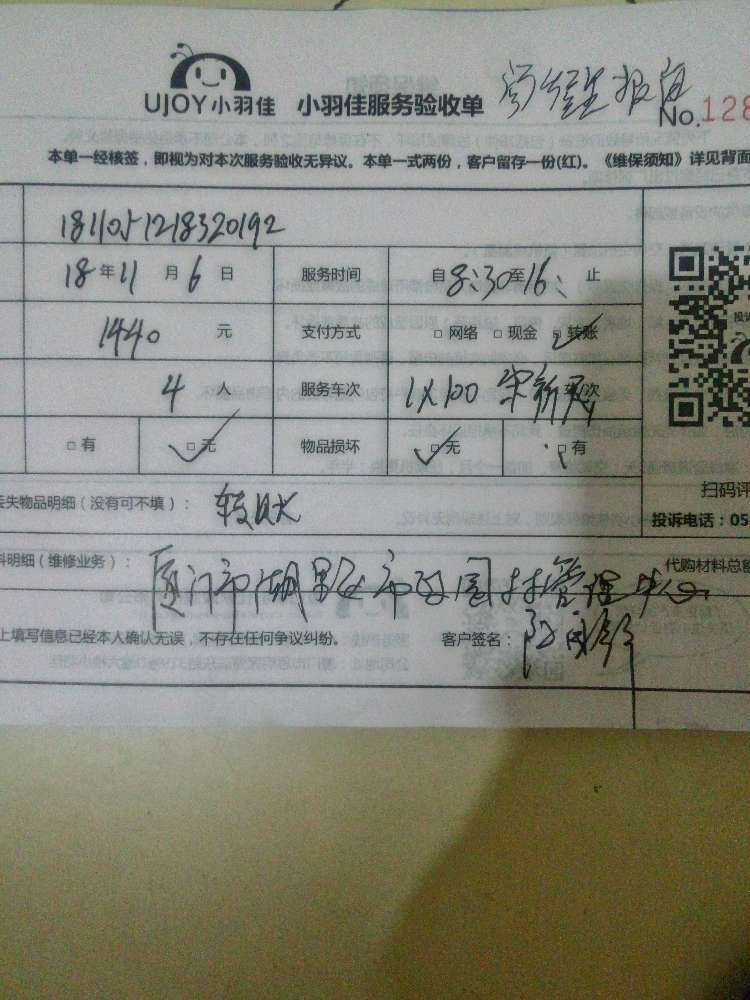 UJOY小羽佳 小羽佳服务验收单
No.128
本单一经核签，即视为对本次服务验收无异议。本单一式两份，客户留存一份(红)。《维保须知》详见背面
1811051218320192
18年11月6日 服务时间 自8:30至16: 止
1440 元 支付方式 □网络 □现金 □转账
4 人 服务车次 1X100 车次
□有 □无 物品损坏 □无 □有
丢失物品明细（没有可不填）： 转账
扫码评
投诉电话：05
料明细（维修业务）： 厦门市湖里区市政园林管理中心 代购材料总额
上填写信息已经本人确认无误，不存在任何争议纠纷。 客户签名：